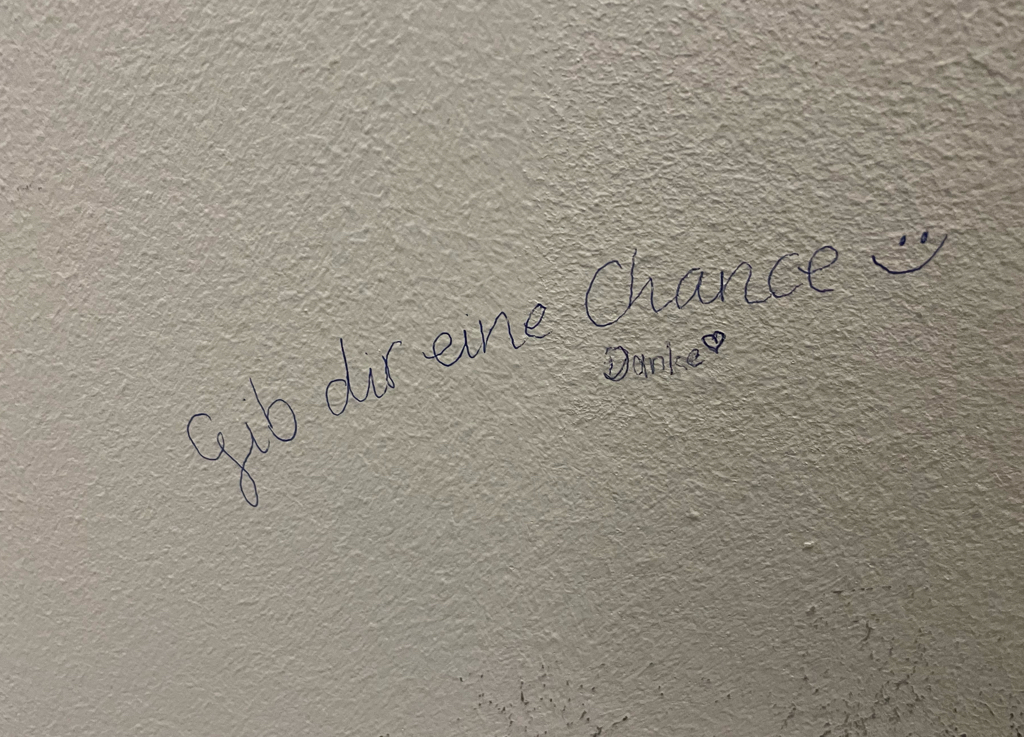 Gib dir eine Chance :)
Danke ♡